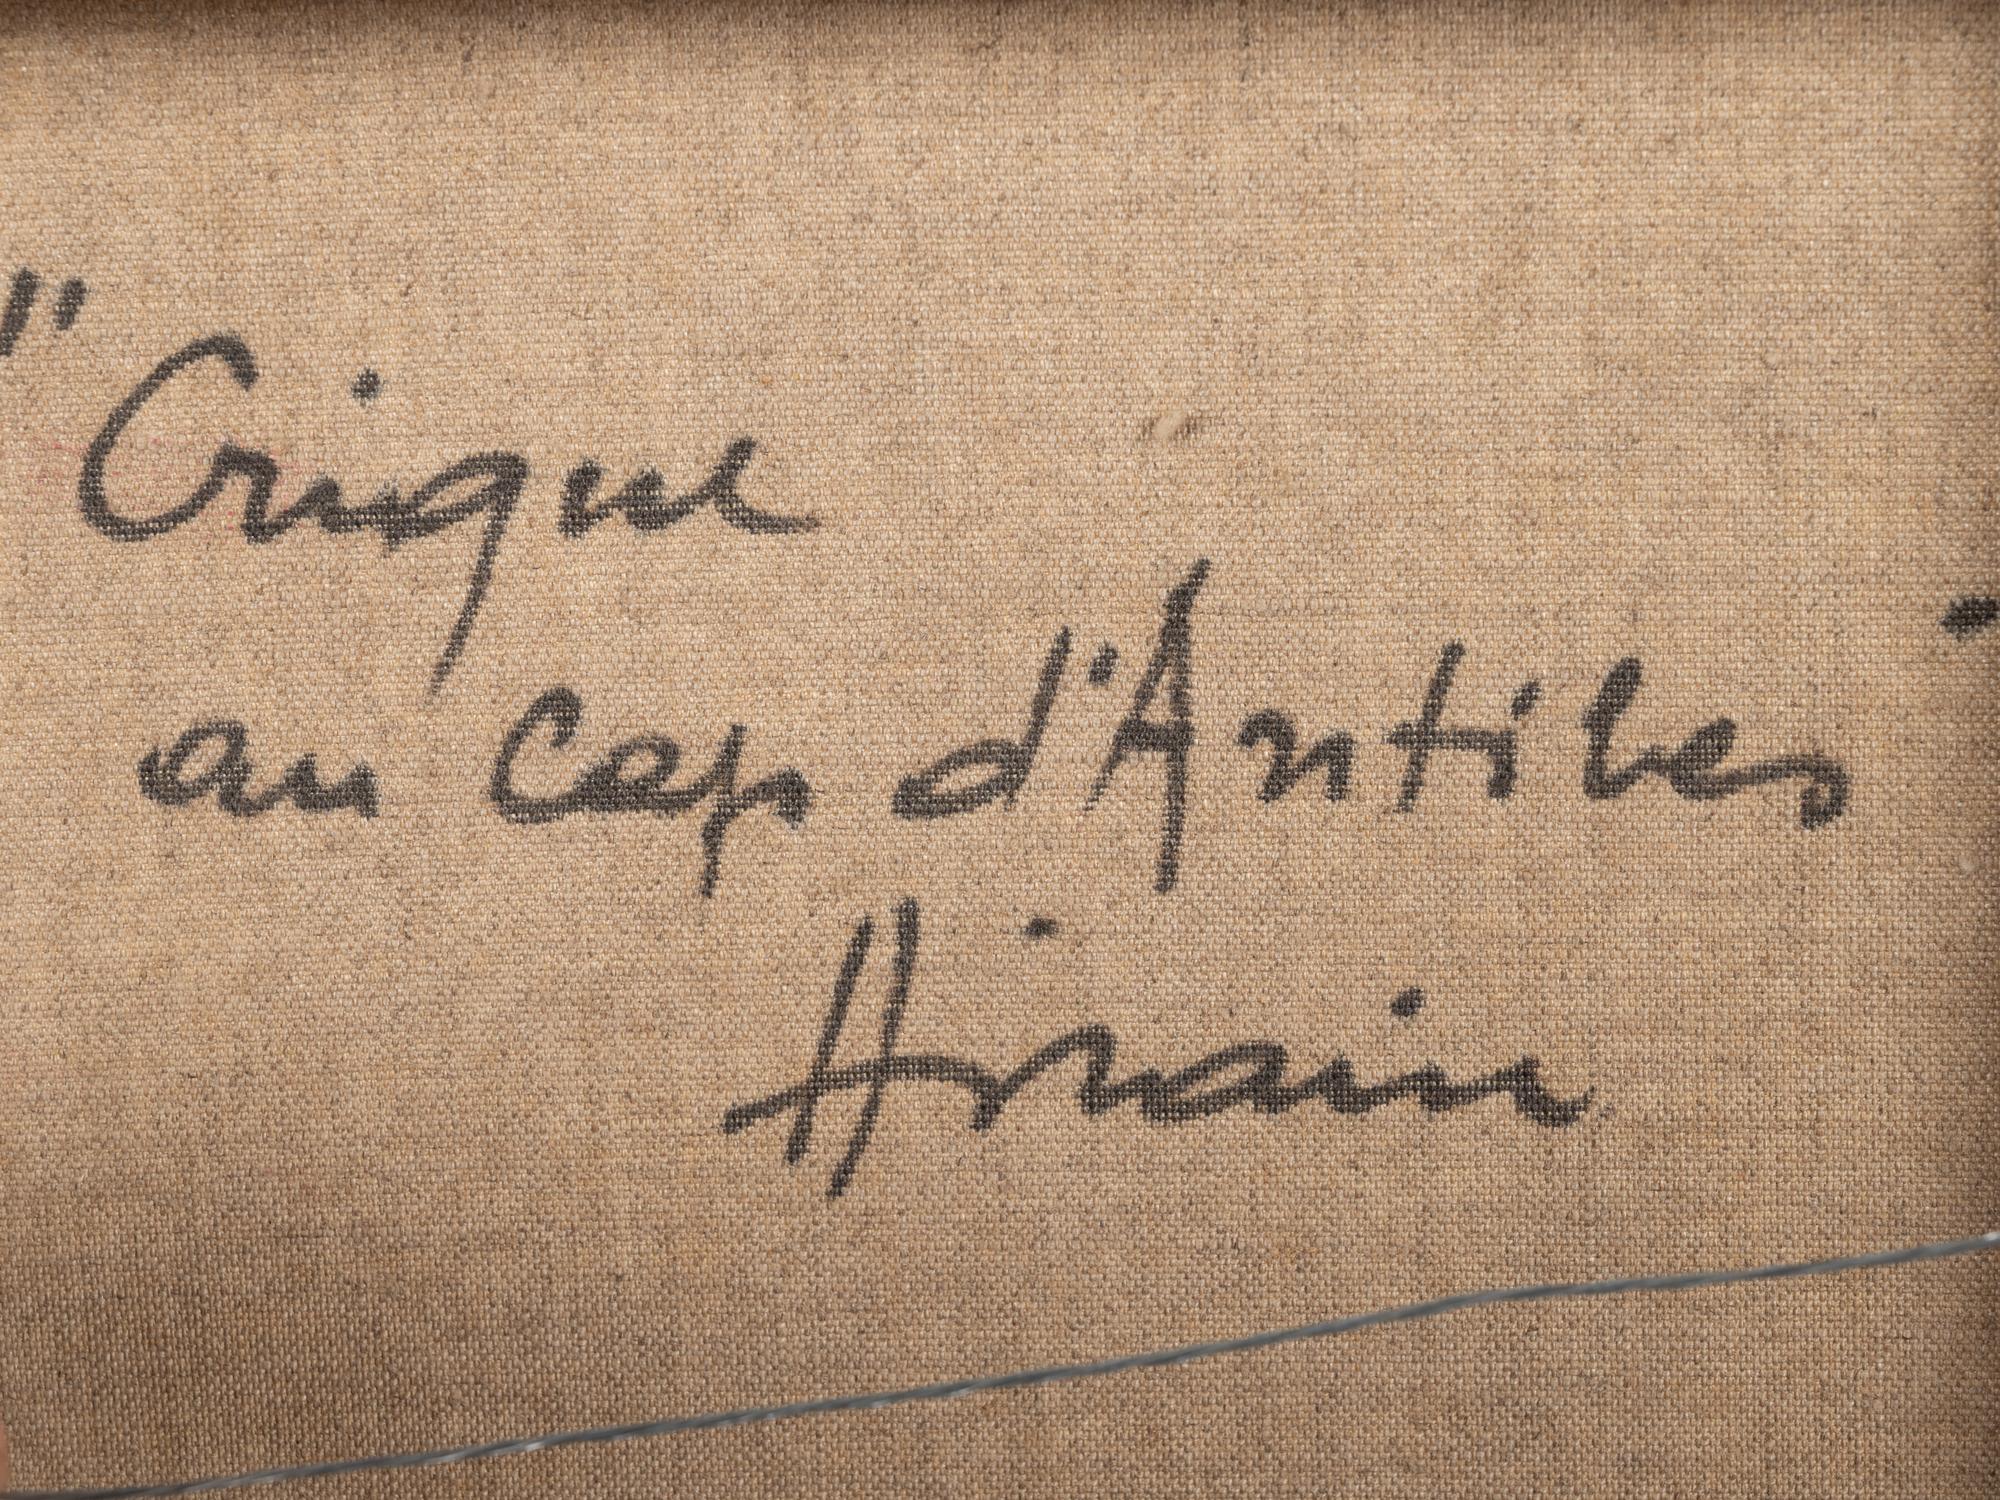 "Crique
au Cap d'Antibes
Hilain